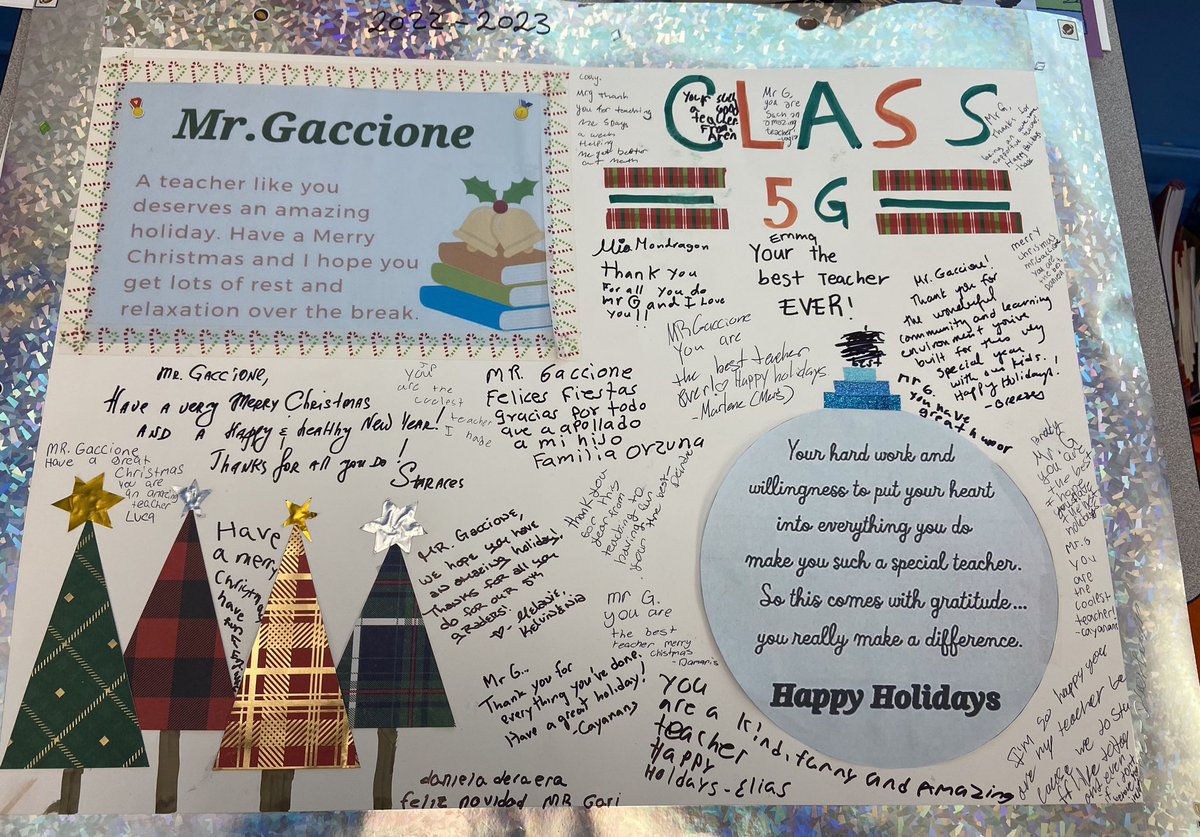 2022-2023
Mr.Gaccione
A teacher like you
deserves an amazing
holiday. Have a Merry
Christmas and I hope you
get lots of rest and
relaxation over the break.
Mrg thank
you for teaching
me 5 days
a week
Helping
me get better
at math
CLASS
5G
Your such
a good
teacher
From:
Aren
Mr G,
you are
such an
amazing
teacher
Mr G,
thanks for
being an awesome
supportive teacher
Happy Holidays
Mia Mondragon
Thank you
For all you do
Mr G and I Love
You!!
Emma
Your the
best Teacher
EVER!
merry
christmas
mr.Gaccione
you are
the best
Mr. Gaccione!
Thank you for
the wonderful
community and learning
environment you've
built for this very
special year
with our kids!
Happy Holidays!
-Breezes
MR Gaccione
You are
the best teacher
ever! Happy holidays
-Marlene (Mars)
Mr. Gaccione,
Have a very Merry Christmas
and a Happy & healthy New Year!
Thanks for all you do!
Staraces
you
are the
coolest
teacher
I hope
MR. Gaccione
Felices Fiestas
gracias por todo
que a apollado
a mi hijo
Familia Orzuna
Mr G.
you have
great humor
MR. Gaccione
Have a great
Christmas
you are
an amazing
teacher
Luca
Have
a merry
Christmas
have
Mr. Gaccione,
We hope you have
an amazing holiday!
Thanks for all you
do for our 5th
graders!
♡- Melanie,
thank you
for this
year from
teaching to
having fun
your the best-
Your hard work and
willingness to put your heart
into everything you do
make you such a special teacher.
So this comes with gratitude...
you really make a difference.
Happy Holidays
Brody
Mr. G
you are
the best
I hope
you have
the best
holidays
Mr.G
you
are
the
coolest
teacher!
-Cayanan
mr G.
you are
the best
teacher merry
chistmas
-Damaris
Mr G..
Thank you for
everything you've done.
Have a great holiday!
-Cayanan
you
are a kind, funny and Amazing
teacher
Happy
Holdays-Elias
daniela deraera
feliz navidad MR Gari
I'm so happy your
are my teacher be
cause we do stu
ff like